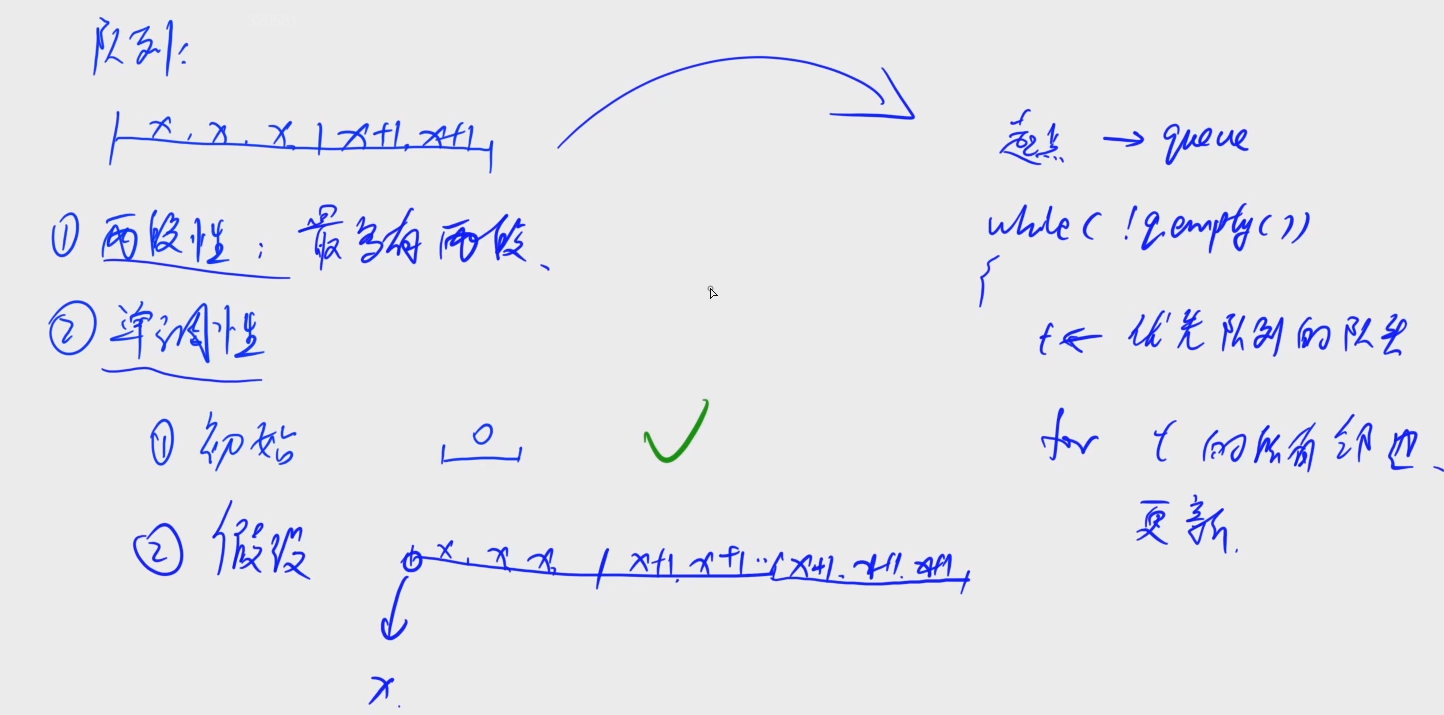 队列:
x, x, x, | x+1, x+1,
① 两段性: 最多有两段、
② 单调性
① 初始 0
② 假设 x, x, x, | x+1, x+1 ··· x+1, x+1, x+1,
x.
起点 → queue
while( !q.empty())
{
t ← 优先队列的队头
for t 的所有邻边、
更新.